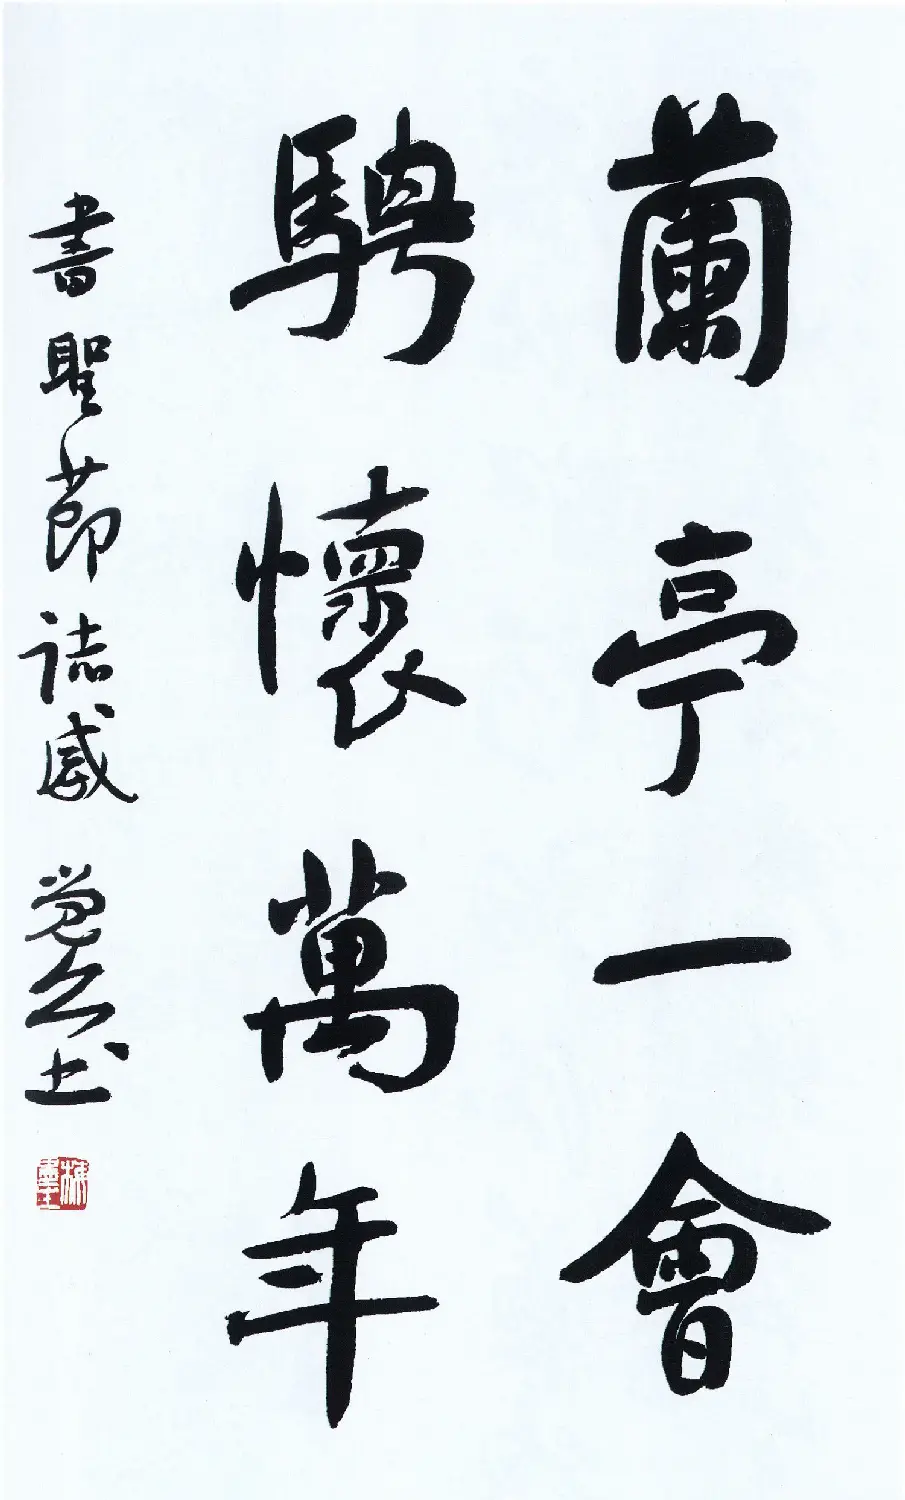 蘭亭一會
騁懷萬年
書聖節誌感
書